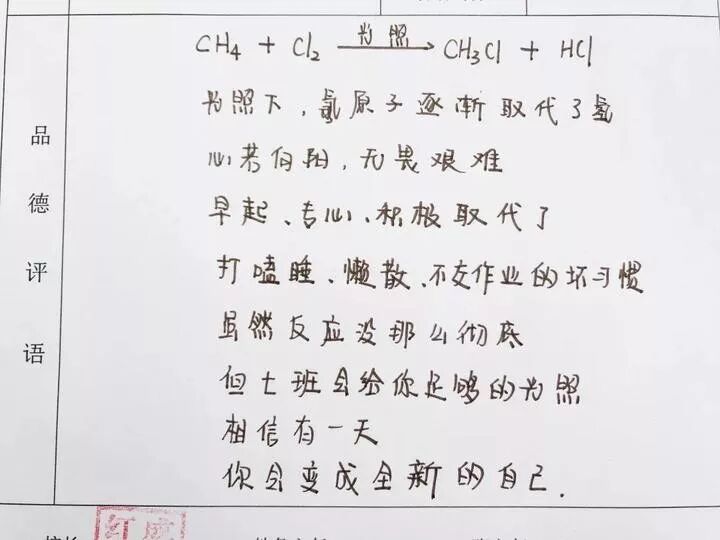 CH4 + Cl2 光照→ CH3Cl + HCl
光照下，氯原子逐渐取代了氢
心若向阳，无畏艰难
早起、专心、积极取代了
打嗑睡、懒散、不交作业的坏习惯
虽然反应没那么彻底
但七班会给你足够的光照
相信有一天
你会变成全新的自己.
品德评语